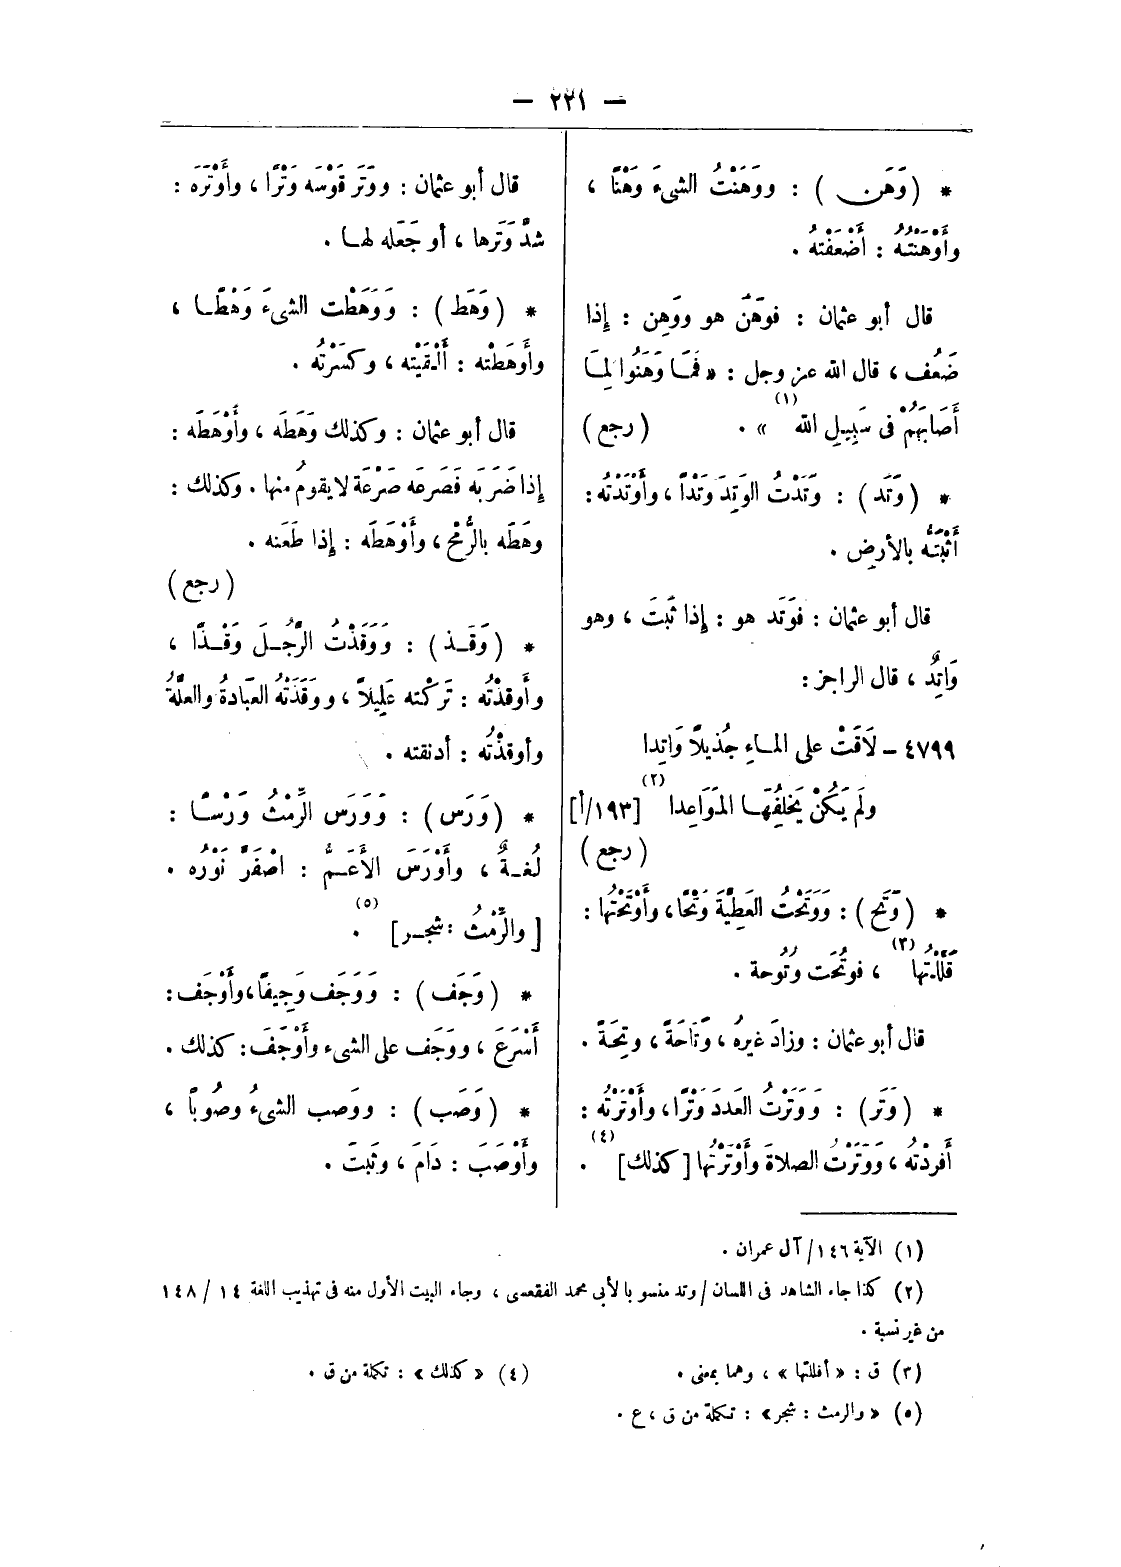 — ٢٢١ —
* ( وَهَن ) : ووَهَنْتُ الشىءَ وَهْنًا ،
وأَوْهَنتُه : أَضْعَفتهُ .
قال أبو عثمان : فوَهَنَ هو ووَهِن : إذا
ضَعُف ، قال الله عز وجل : « فَمَا وَهَنُوا لِمَا
أَصَابَهُمْ فى سَبِيلِ الله (١) » . ( رجع )
* ( وَتَد ) : وَتَدْتُ الوَتِدَ وَتْدًا ، وأَوْتَدْتُه :
أَثْبَتُّه بالأرضِ .
قال أبو عثمان : فوَتَد هو : إذا ثَبَتَ ، وهو
وَاتِدٌ ، قال الراجز :
٤٧٩٩ – لَاقَتْ على المـاءِ جُذيلاً وَاتِدا
ولَم يَكُنْ يَخلِفُهَـا المَوَاعِدا (٢) [١٩٣/أ]
( رجع )
* ( وَتَح ) : ووَتَحْتُ العَطِيَّةَ وَتْحًا ، وأَوْتَحْتُها :
قَلَّلْتُها (٣) ، فوتُحَت وَتُوحة .
قال أبو عثمان : وزادَ غيرهُ ، وَتَاحَةً ، وتِحَةً .
* ( وَتَر ) : ووَتَرْتُ العَدَدَ وَتْرًا ، وأَوْتَرْتُه :
أَفردْتُه ، ووَتَرْتُ الصلاةَ وأَوْتَرْتُها [ كذلك ] (٤) .
قال أبو عثمان : ووَتَرَ قوْسَه وَتْرًا ، وأَوْتَرَه :
شدَّ وَتَرها ، أو جَعَله لهـا .
* ( وَهَط ) : ووَهَطْت الشىءَ وَهْطًـا ،
وأَوهَطْته : أَلْقَيْته ، وكسَرْتُه .
قال أبو عثمان : وكذلك وَهَطَه ، وأَوْهَطَه :
إذا ضَرَبَه فَصَرعَه صَرْعَة لا يقومُ منها . وكذلك :
وهَطَه بالرُّمْحِ ، وأَوْهَطَه : إذا طَعَنه .
( رجع )
* ( وَقَـذ ) : ووَقَذْتُ الرَّجُـلَ وَقْـذًا ،
وأَوقَذْتُه : تَرَكْته عَلِيلاً ، ووقَذَتْهُ العَبَادةُ والعلَّةُ
وأوقذْتُه : أدنقته .
* ( وَرَس ) : ووَرَس الرِّمْثُ وَرْسًـا :
لُغـةٌ ، وأَوْرَسَ الأَعَـمُّ : اصْفَرَّ نَوْرُه .
[ والرِّمْثُ : شجـر ] (٥) .
* ( وَجَف ) : ووَجَف وَجِيفًا ، وأَوْجَف :
أَسْرَعَ ، ووَجَف على الشىء وأَوْجَفَ : كذلك .
* ( وَصَب ) : ووَصب الشىءُ وصُوبًا ،
وأَوْصَبَ : دَامَ ، وثَبتَ .
(١) الآية ١٤٦/ آل عمران .
(٢) كذا جاء الشاهد فى اللسان / وتد منسوبا لأبى محمد الفقعسى ، وجاء البيت الأول منه فى تهذيب اللغة ١٤ / ١٤٨
من غير نسبة .
(٣) ق : « أقللتها » ، وهما بمعنى .
(٤) « كذلك » : تكملة من ق .
(٥) « والرمث : شجر » : تكملة من ق ، ع .